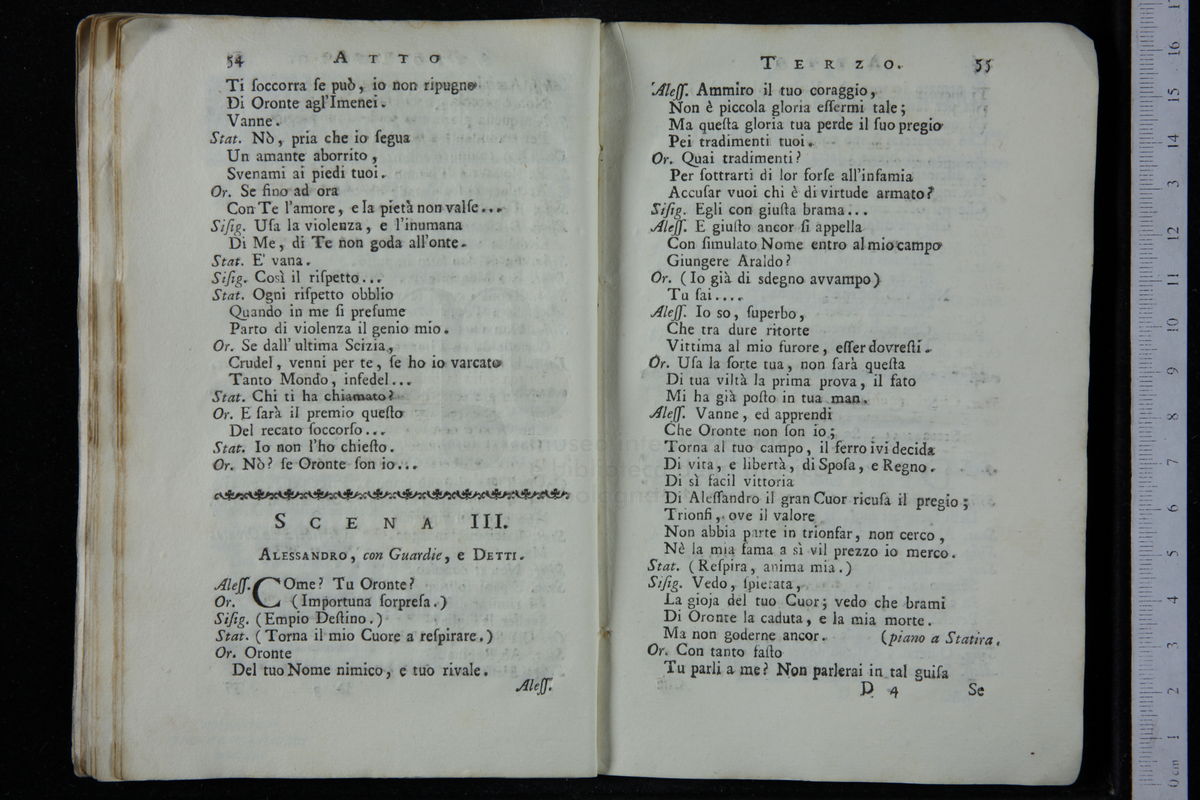 54 ATTO
Ti ſoccorra ſe può, io non ripugno
Di Oronte agl'Imenei.
Vanne.
Stat. Nò, pria che io ſegua
Un amante aborrito,
Svenami ai piedi tuoi.
Or. Se fino ad ora
Con Te l'amore, e la pietà non valſe...
Siſig. Uſa la violenza, e l'inumana
Di Me, di Te non goda all'onte.
Stat. E' vana.
Siſig. Così il riſpetto...
Stat. Ogni riſpetto obblio
Quando in me ſi preſume
Parto di violenza il genio mio.
Or. Se dall' ultima Scizia,
Crudel, venni per te, ſe ho io varcato
Tanto Mondo, infedel...
Stat. Chi ti ha chiamato?
Or. E ſarà il premio queſto
Del recato ſoccorſo...
Stat. Io non l'ho chieſto.
Or. Nò? ſe Oronte ſon io...
SCENA III.
ALESSANDRO, con Guardie, e DETTI.
Aleſſ. COme? Tu Oronte?
Or. (Importuna ſorpreſa.)
Siſig. (Empio Deſtino.)
Stat. (Torna il mio Cuore a reſpirare.)
Or. Oronte
Del tuo Nome nimico, e tuo rivale.
Aleſſ.
TERZO. 55
Aleſſ. Ammiro il tuo coraggio,
Non è piccola gloria eſſermi tale;
Ma queſta gloria tua perde il ſuo pregio
Pei tradimenti tuoi.
Or. Quai tradimenti?
Per ſottrarti di lor forſe all'infamia
Accuſar vuoi chi è di virtude armato?
Siſig. Egli con giuſta brama...
Aleſſ. E giuſto ancor ſi appella
Con ſimulato Nome entro al mio campo
Giungere Araldo?
Or. (Io già di sdegno avvampo)
Tu ſai....
Aleſſ. Io so, ſuperbo,
Che tra dure ritorte
Vittima al mio furore, eſſer dovreſti.
Or. Uſa la ſorte tua, non ſarà queſta
Di tua viltà la prima prova, il fato
Mi ha già poſto in tua man.
Aleſſ. Vanne, ed apprendi
Che Oronte non ſon io;
Torna al tuo campo, il ferro ivi decida
Di vita, e libertà, di Spoſa, e Regno.
Di sì facil vittoria
Di Aleſſandro il gran Cuor ricuſa il pregio;
Trionfi, ove il valore
Non abbia parte in trionfar, non cerco,
Nè la mia fama a sì vil prezzo io merco.
Stat. (Reſpira, anima mia.)
Siſig. Vedo, ſpietata,
La gioja del tuo Cuor; vedo che brami
Di Oronte la caduta, e la mia morte.
Ma non goderne ancor. (piano a Statira.
Or. Con tanto faſto
Tu parli a me? Non parlerai in tal guiſa
D 4 Se
0 cm 1 2 3 4 5 6 7 8 9 10 11 12 13 14 15 16 17